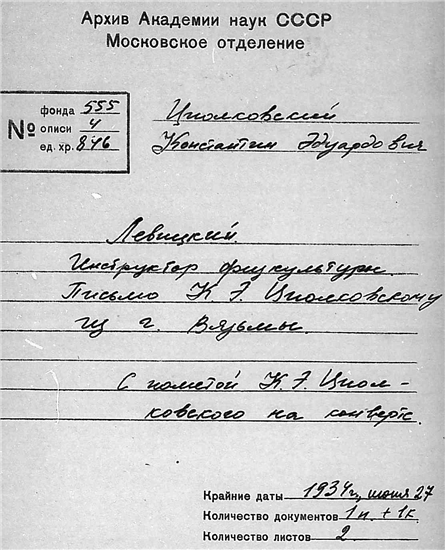 Архив Академии наук СССР
Московское отделение
№
фонда 555
описи 4
ед. хр. 846
Циолковский
Константин Эдуардович
Левицкий.
Инструктор физкультуры.
Письмо К. Э. Циолковскому
из г. Вязьмы.
С пометой К. Э. Циол-
ковского на конверте.
Крайние даты 1934 г., июня 27
Количество документов 1 п. + 1 к.
Количество листов 2